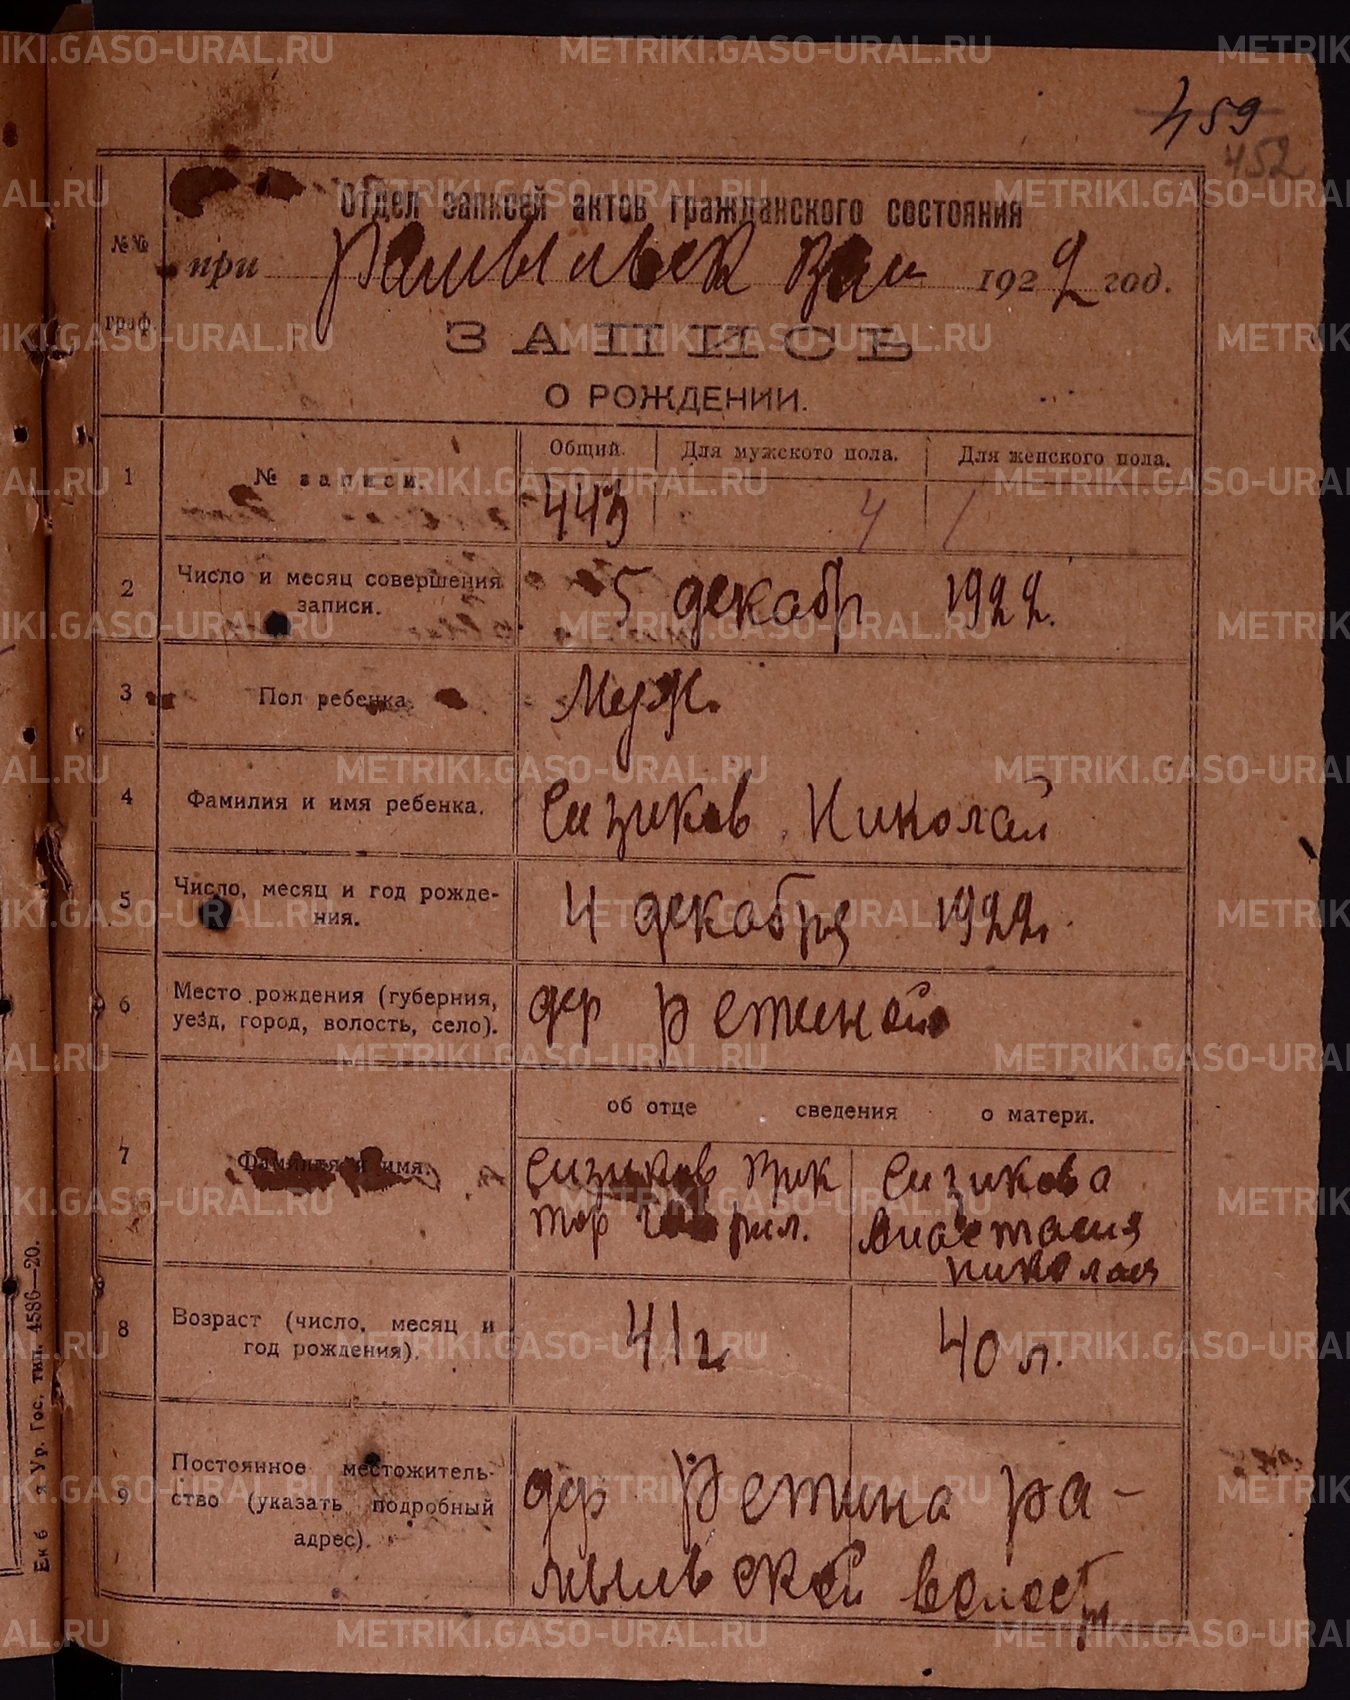 459
452
Отдел записей актов гражданского состояния
№№ граф.
при Рамыльск 1922 год.
ЗАПИСЬ
О РОЖДЕНИИ.
Общий. Для мужского пола. Для женского пола.
1 № записи. 443 4 /
2 Число и месяц совершения записи. 5 декабр 1922.
3 Пол ребенка Муж.
4 Фамилия и имя ребенка. Сизиков Николай
5 Число, месяц и год рожде-
ния. 4 декабря 1922.
6 Место рождения (губерния, дер Ретиной
уезд, город, волость, село).
об отце сведения о матери.
7 Фамилия и имя. Сизиков Вик Сизикова
тор Гаврил. Анастасия
николая
8 Возраст (число, месяц и год рождения). 41 г 40 л.
9 Постоянное местожитель-
ство (указать подробный адрес). дер Ретина Ра-
мыльской волости
Ек б я Ур. Гос. тип. 4586—20.
METRIKI.GASO-URAL.RU